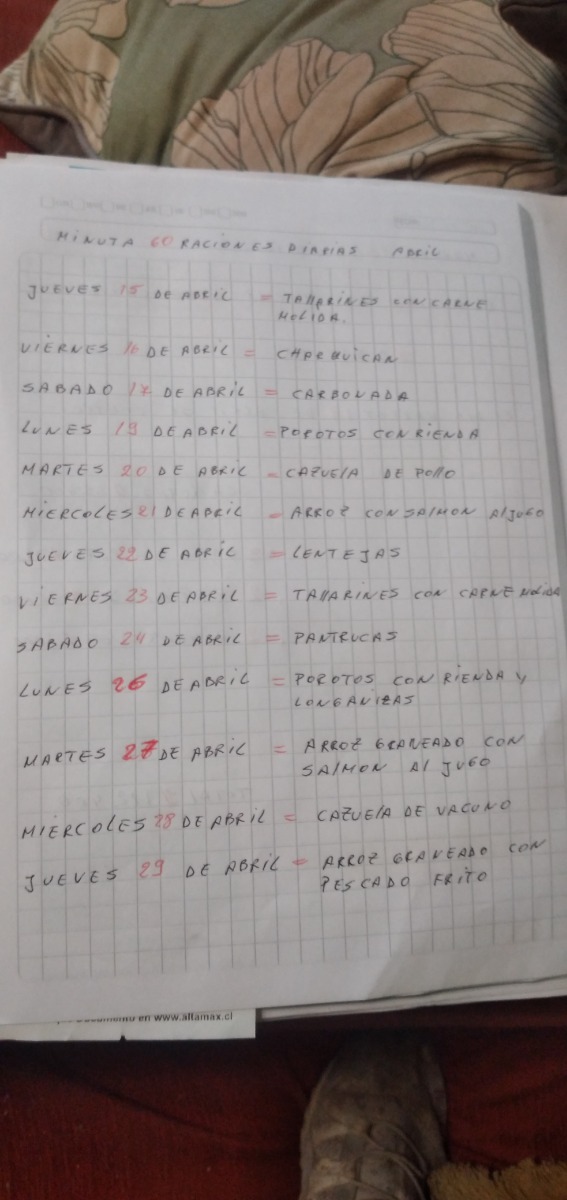 MINUTA 60 RACIONES DIARIAS ABRIL
JUEVES 15 DE ABRIL = TALLARINES CON CARNE
MOLIDA.
VIERNES 16 DE ABRIL = CHARQUICAN
SABADO 17 DE ABRIL = CARBONADA
LUNES 19 DE ABRIL = POROTOS CON RIENDA
MARTES 20 DE ABRIL = CAZUELA DE POLLO
MIERCOLES 21 DE ABRIL = ARROZ CON SALMON AL JUGO
JUEVES 22 DE ABRIL = LENTEJAS
VIERNES 23 DE ABRIL = TALLARINES CON CARNE MOLIDA
SABADO 24 DE ABRIL = PANTRUCAS
LUNES 26 DE ABRIL = POROTOS CON RIENDA Y
LONGANIZAS
MARTES 27 DE ABRIL = ARROZ GRANEADO CON
SALMON AL JUGO
MIERCOLES 28 DE ABRIL = CAZUELA DE VACUNO
JUEVES 29 DE ABRIL = ARROZ GRANEADO CON
PESCADO FRITO
en www.altamax.cl